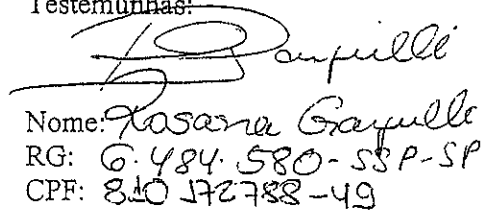 Testemunhas:
Nome: Rosana
RG: 6.484.580-SSP-SP
CPF: 810 172788-49